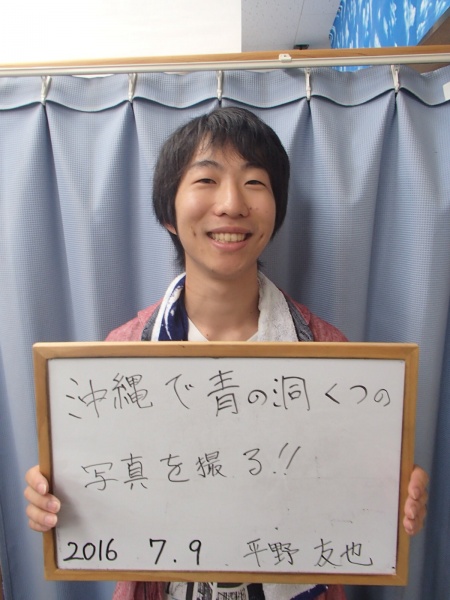 沖縄で青の洞くつの
写真を撮る!!
2016 7.9 平野 友也